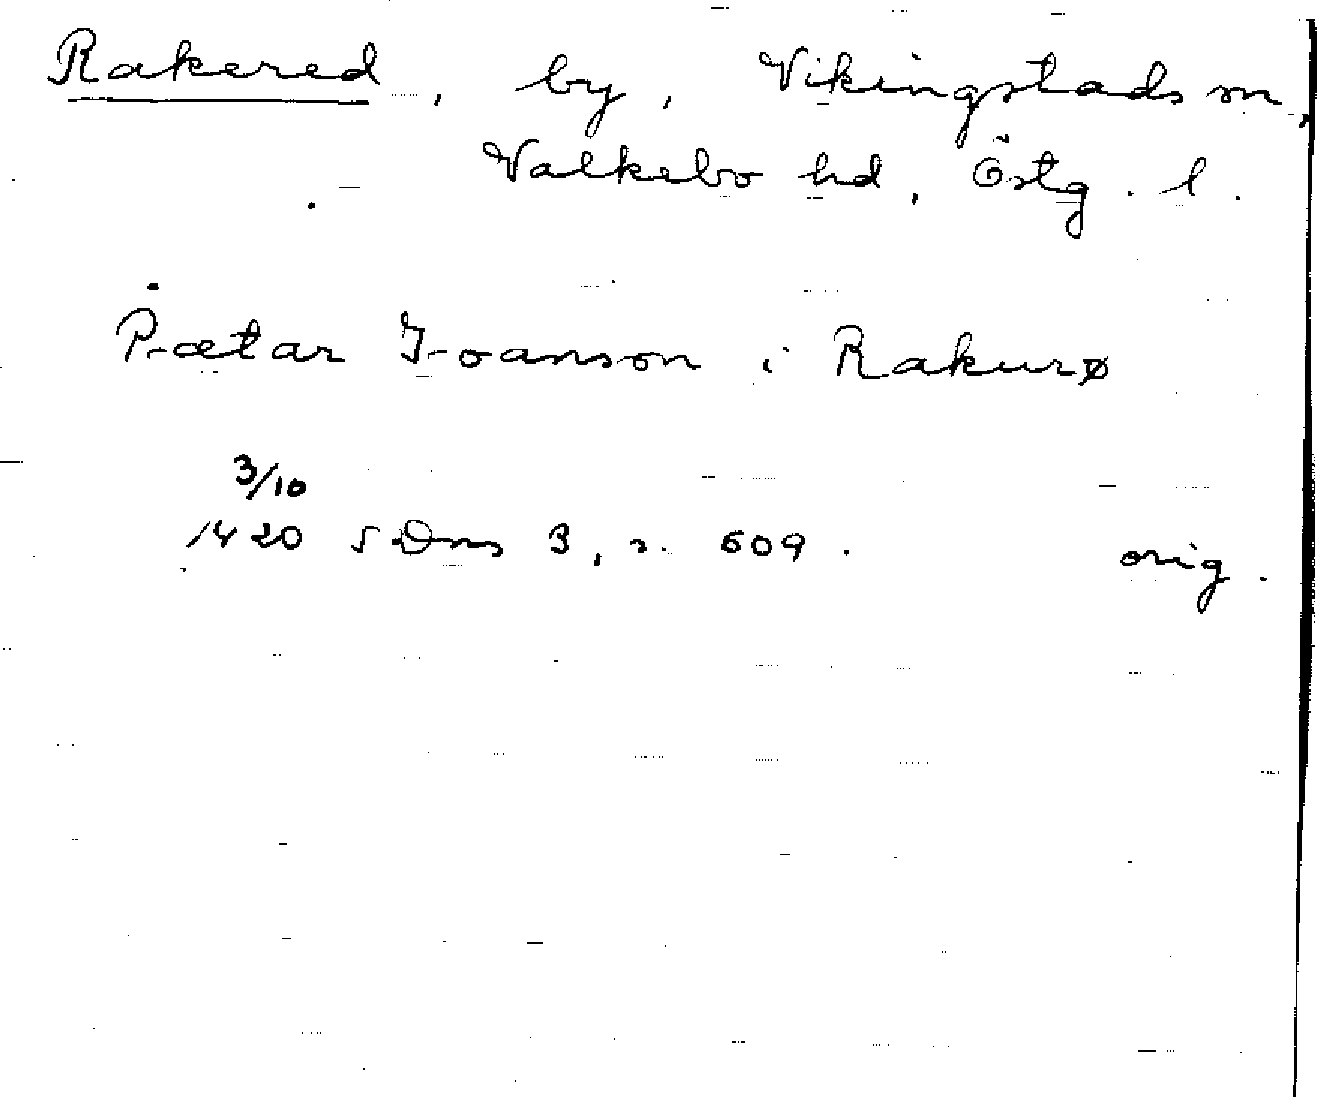 Rakered, by, Vikingstads sn,
Valkebo hd, Östg. l.
Pætar Joanson i Rakurø
3/10
1420 SDns 3, s. 609. orig.